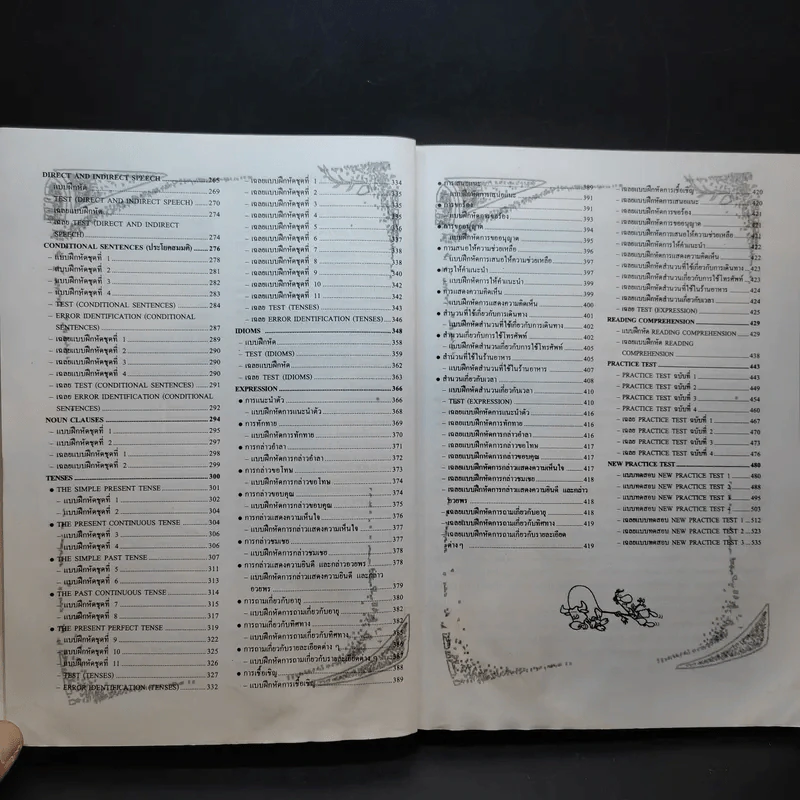 DIRECT AND INDIRECT SPEECH 265
แบบฝึกหัด 269
TEST (DIRECT AND INDIRECT SPEECH) 270
เฉลยแบบฝึกหัด 274
เฉลย TEST (DIRECT AND INDIRECT
SPEECH) 274
CONDITIONAL SENTENCES (ประโยคสมมติ) 276
– แบบฝึกหัดชุดที่ 1 278
– แบบฝึกหัดชุดที่ 2 281
– แบบฝึกหัดชุดที่ 3 282
– แบบฝึกหัดชุดที่ 4 283
– TEST (CONDITIONAL SENTENCES) 284
– ERROR IDENTIFICATION (CONDITIONAL
SENTENCES) 287
– เฉลยแบบฝึกหัดชุดที่ 1 289
– เฉลยแบบฝึกหัดชุดที่ 2 290
– เฉลยแบบฝึกหัดชุดที่ 3 290
– เฉลยแบบฝึกหัดชุดที่ 4 290
– เฉลย TEST (CONDITIONAL SENTENCES) 291
– เฉลย ERROR IDENTIFICATION (CONDITIONAL
SENTENCES) 292
NOUN CLAUSES 294
– แบบฝึกหัดชุดที่ 1 297
– แบบฝึกหัดชุดที่ 2 297
– เฉลยแบบฝึกหัดชุดที่ 1 298
– เฉลยแบบฝึกหัดชุดที่ 2 299
TENSES 300
● THE SIMPLE PRESENT TENSE 301
– แบบฝึกหัดชุดที่ 1 302
– แบบฝึกหัดชุดที่ 2 304
● THE PRESENT CONTINUOUS TENSE 304
– แบบฝึกหัดชุดที่ 3 306
– แบบฝึกหัดชุดที่ 4 306
● THE SIMPLE PAST TENSE 307
– แบบฝึกหัดชุดที่ 5 311
– แบบฝึกหัดชุดที่ 6 313
● THE PAST CONTINUOUS TENSE 314
– แบบฝึกหัดชุดที่ 7 315
– แบบฝึกหัดชุดที่ 8 317
● THE PRESENT PERFECT TENSE 319
– แบบฝึกหัดชุดที่ 9 322
– แบบฝึกหัดชุดที่ 10 325
– แบบฝึกหัดชุดที่ 11 326
– TEST (TENSES) 327
– ERROR IDENTIFICATION (TENSES) 332
– เฉลยแบบฝึกหัดชุดที่ 1 334
– เฉลยแบบฝึกหัดชุดที่ 2
– เฉลยแบบฝึกหัดชุดที่ 3
– เฉลยแบบฝึกหัดชุดที่ 4
– เฉลยแบบฝึกหัดชุดที่ 5
– เฉลยแบบฝึกหัดชุดที่ 6
– เฉลยแบบฝึกหัดชุดที่ 7
– เฉลยแบบฝึกหัดชุดที่ 8
– เฉลยแบบฝึกหัดชุดที่ 9 340
– เฉลยแบบฝึกหัดชุดที่ 10 342
– เฉลยแบบฝึกหัดชุดที่ 11 342
– เฉลย TEST (TENSES) 343
– เฉลย ERROR IDENTIFICATION (TENSES) 346
IDIOMS 348
– แบบฝึกหัด 358
– TEST (IDIOMS) 359
– เฉลยแบบฝึกหัด 362
– เฉลย TEST (IDIOMS) 363
EXPRESSION 366
● การแนะนำตัว 366
– แบบฝึกหัดการแนะนำตัว 368
● การทักทาย 369
– แบบฝึกหัดการทักทาย 370
● การกล่าวอำลา 371
– แบบฝึกหัดการกล่าวอำลา 372
● การกล่าวขอโทษ 373
– แบบฝึกหัดการกล่าวขอโทษ 374
● การกล่าวขอบคุณ 374
– แบบฝึกหัดการกล่าวขอบคุณ 375
● การกล่าวแสดงความเห็นใจ 376
– แบบฝึกหัดการกล่าวแสดงความเห็นใจ 377
● การกล่าวชมเชย 377
– แบบฝึกหัดการกล่าวชมเชย 378
● การกล่าวแสดงความยินดี และกล่าวอวยพร 378
– แบบฝึกหัดการกล่าวแสดงความยินดี และกล่าว
อวยพร 379
● การถามเกี่ยวกับอายุ 380
– แบบฝึกหัดการถามเกี่ยวกับอายุ 382
● การถามเกี่ยวกับทิศทาง 382
– แบบฝึกหัดการถามเกี่ยวกับทิศทาง 385
● การถามเกี่ยวกับรายละเอียดต่าง ๆ
– แบบฝึกหัดการถามเกี่ยวกับรายละเอียดต่าง ๆ 387
● การเชื้อเชิญ 388
– แบบฝึกหัดการเชื้อเชิญ 389
● การเสนอแนะ 389
– แบบฝึกหัดการเสนอแนะ 391
● การขอร้อง 391
– แบบฝึกหัดการขอร้อง 393
● การขออนุญาต 394
– แบบฝึกหัดการขออนุญาต 395
● การเสนอให้ความช่วยเหลือ 396
– แบบฝึกหัดการเสนอให้ความช่วยเหลือ 397
● การให้คำแนะนำ 397
– แบบฝึกหัดการให้คำแนะนำ 398
● การแสดงความคิดเห็น 399
– แบบฝึกหัดการแสดงความคิดเห็น 400
● สำนวนที่ใช้เกี่ยวกับการเดินทาง 401
– แบบฝึกหัดสำนวนที่ใช้เกี่ยวกับการเดินทาง 402
● สำนวนเกี่ยวกับการใช้โทรศัพท์ 402
– แบบฝึกหัดสำนวนเกี่ยวกับการใช้โทรศัพท์ 405
● สำนวนที่ใช้ในร้านอาหาร 405
– แบบฝึกหัดสำนวนที่ใช้ในร้านอาหาร 407
● สำนวนเกี่ยวกับเวลา 408
– แบบฝึกหัดสำนวนเกี่ยวกับเวลา 409
– TEST (EXPRESSION) 410
– เฉลยแบบฝึกหัดการแนะนำตัว 416
– เฉลยแบบฝึกหัดการทักทาย 416
– เฉลยแบบฝึกหัดการกล่าวอำลา 416
– เฉลยแบบฝึกหัดการกล่าวขอโทษ 417
– เฉลยแบบฝึกหัดการกล่าวขอบคุณ 417
– เฉลยแบบฝึกหัดการกล่าวแสดงความเห็นใจ 417
– เฉลยแบบฝึกหัดการกล่าวชมเชย 418
– เฉลยแบบฝึกหัดการกล่าวแสดงความยินดี และกล่าว
อวยพร 418
– เฉลยแบบฝึกหัดการถามเกี่ยวกับอายุ 418
– เฉลยแบบฝึกหัดการถามเกี่ยวกับทิศทาง 418
– เฉลยแบบฝึกหัดการถามเกี่ยวกับรายละเอียด
ต่าง ๆ 419
– เฉลยแบบฝึกหัดการเชื้อเชิญ 420
– เฉลยแบบฝึกหัดการเสนอแนะ 420
– เฉลยแบบฝึกหัดการขอร้อง 421
– เฉลยแบบฝึกหัดการขออนุญาต 421
– เฉลยแบบฝึกหัดการเสนอให้ความช่วยเหลือ
– เฉลยแบบฝึกหัดการให้คำแนะนำ 422
– เฉลยแบบฝึกหัดการแสดงความคิดเห็น 422
– เฉลยแบบฝึกหัดสำนวนที่ใช้เกี่ยวกับการเดินทาง 422
– เฉลยแบบฝึกหัดสำนวนเกี่ยวกับการใช้โทรศัพท์ 423
– เฉลยแบบฝึกหัดสำนวนที่ใช้ในร้านอาหาร 424
– เฉลยแบบฝึกหัดสำนวนเกี่ยวกับเวลา 424
– เฉลย TEST (EXPRESSION) 425
READING COMPREHENSION 429
– แบบฝึกหัด READING COMPREHENSION 429
– เฉลยแบบฝึกหัด READING
COMPREHENSION 438
PRACTICE TEST 443
– PRACTICE TEST ฉบับที่ 1 443
– PRACTICE TEST ฉบับที่ 2 449
– PRACTICE TEST ฉบับที่ 3 454
– PRACTICE TEST ฉบับที่ 4 460
– เฉลย PRACTICE TEST ฉบับที่ 1 467
– เฉลย PRACTICE TEST ฉบับที่ 2 470
– เฉลย PRACTICE TEST ฉบับที่ 3 473
– เฉลย PRACTICE TEST ฉบับที่ 4 476
NEW PRACTICE TEST 480
– แบบทดสอบ NEW PRACTICE TEST 1 480
– แบบทดสอบ NEW PRACTICE TEST 2 488
– แบบทดสอบ NEW PRACTICE TEST 3 495
– แบบทดสอบ NEW PRACTICE TEST 4 503
– เฉลยแบบทดสอบ NEW PRACTICE TEST 1 512
– เฉลยแบบทดสอบ NEW PRACTICE TEST 2 523
– เฉลยแบบทดสอบ NEW PRACTICE TEST 3 535